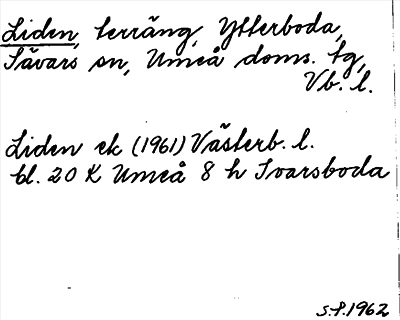 Liden, terräng, Ytterboda,
Sävars sn, Umeå doms. tg,
Vb. l.
Liden ek (1961) Västerb. l.
bl. 20 K Umeå 8 h Ivarsboda
S.F. 1962